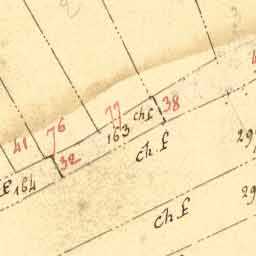 77
ch f
38
76
163
41
32
ch.f
164
ch.f